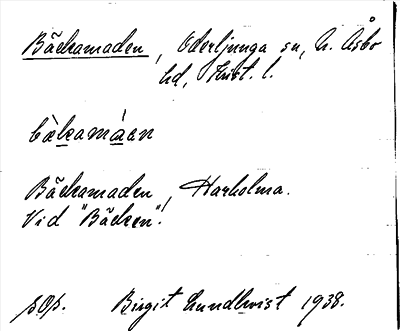 Bäckamaden, Oderljunga sn, N. Åsbo
hd, Krist. l.
bàkamáen
Bäckamaden, Harholma.
Vid "Bäcken".
pop. Birgit Lundkvist 1938.